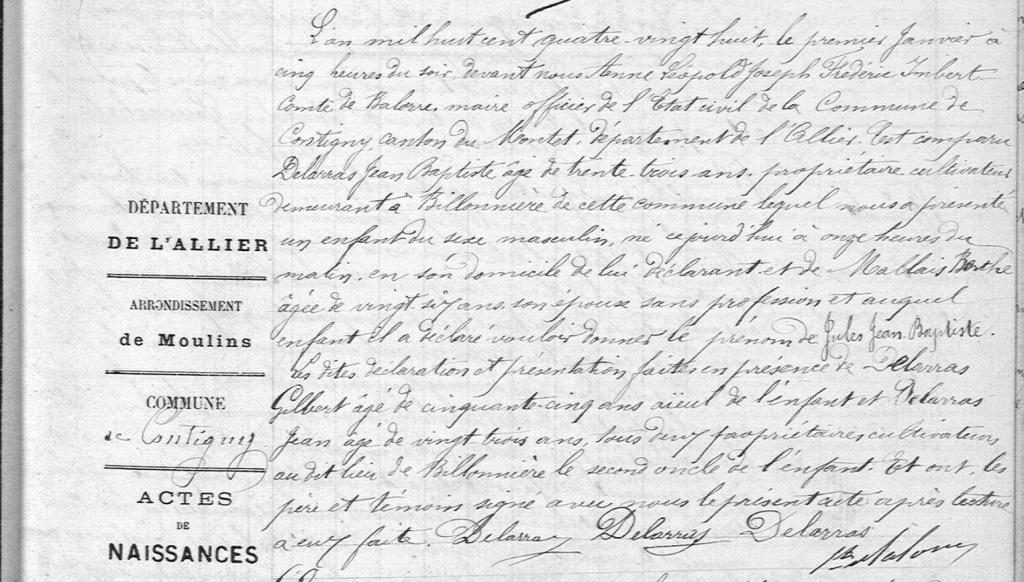 L'an mil huit cent quatre-vingt huit, le premier Janvier à
cinq heures du soir, devant nous Anne Léopold Joseph Frédéric Imbert
Comte de Balorre, maire officier de l'Etat civil de la Commune de
Contigny, canton du Montet, département de l'Allier. Est comparu
Delarras Jean Baptiste âgé de trente trois ans, propriétaire cultivateur
demeurant à Billonnière de cette commune lequel nous a présenté
un enfant du sexe masculin, né cejourd'hui à onze heures du
matin, en son domicile de lui déclarant et de Mallais Berthe
âgée de vingt six ans, son épouse sans profession et auquel
enfant il a déclaré vouloir donner le prénom de Jules Jean Baptiste.
Les dites déclaration et présentation faites en présence de Delarras
Gilbert âgé de cinquante-cinq ans aïeul de l'enfant et Delarras
Jean âgé de vingt trois ans, tous deux propriétaires cultivateurs
au dit lieu de Billonnière le second oncle de l'enfant. Et ont, les
père et témoin signé avec nous le présent acte après lecture
à eux faite. Delarras Delarras Delarras
DÉPARTEMENT
DE L'ALLIER
ARRONDISSEMENT
de Moulins
COMMUNE
de Contigny
ACTES
DE
NAISSANCES